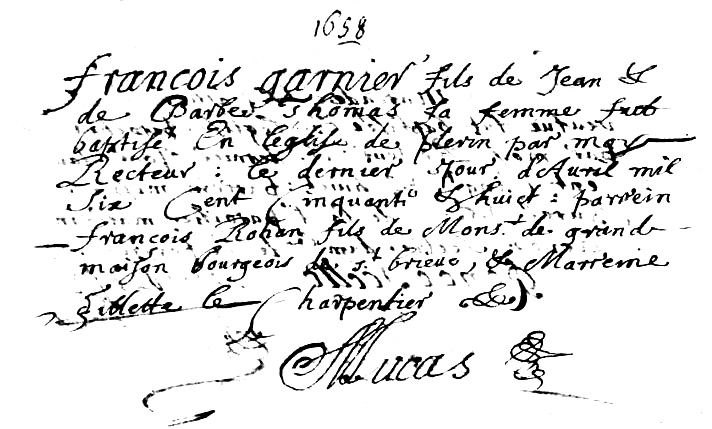 1658
francois garnier fils de Jean &
de Barbe Thomas sa femme fut
baptisé En leglise de plerin par moy
Recteur : le dernier Jour d'Auril mil
Six Cent Cinquante & huict : parrein
francois Rohan fils de Mons.r de grand
maison bourgeois de s.t brieuc, & Marreine
Gillette le Charpentier &c.
Lucas